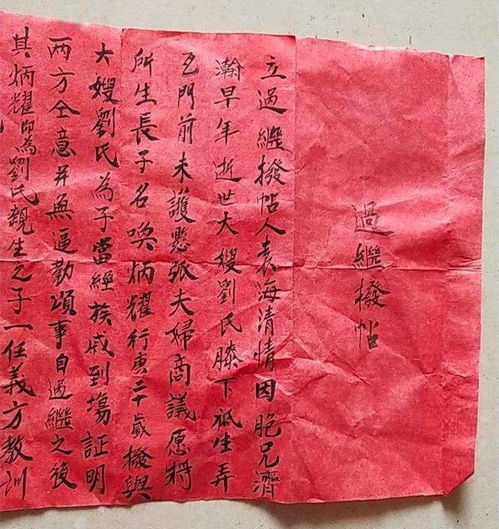 過繼撥帖
立過繼撥帖人袁海清情因胞兄濟
瀚早年逝世大嫂劉氏膝下祗生弄
瓦門前未護懸弧夫婦商議愿將
所生長子名喚炳耀行庚二十歲撥與
大嫂劉氏為子當經族戚到塲証明
兩方仝意并無逼勒情事自過繼之後
其炳耀即為劉氏親生之子一任義方教訓